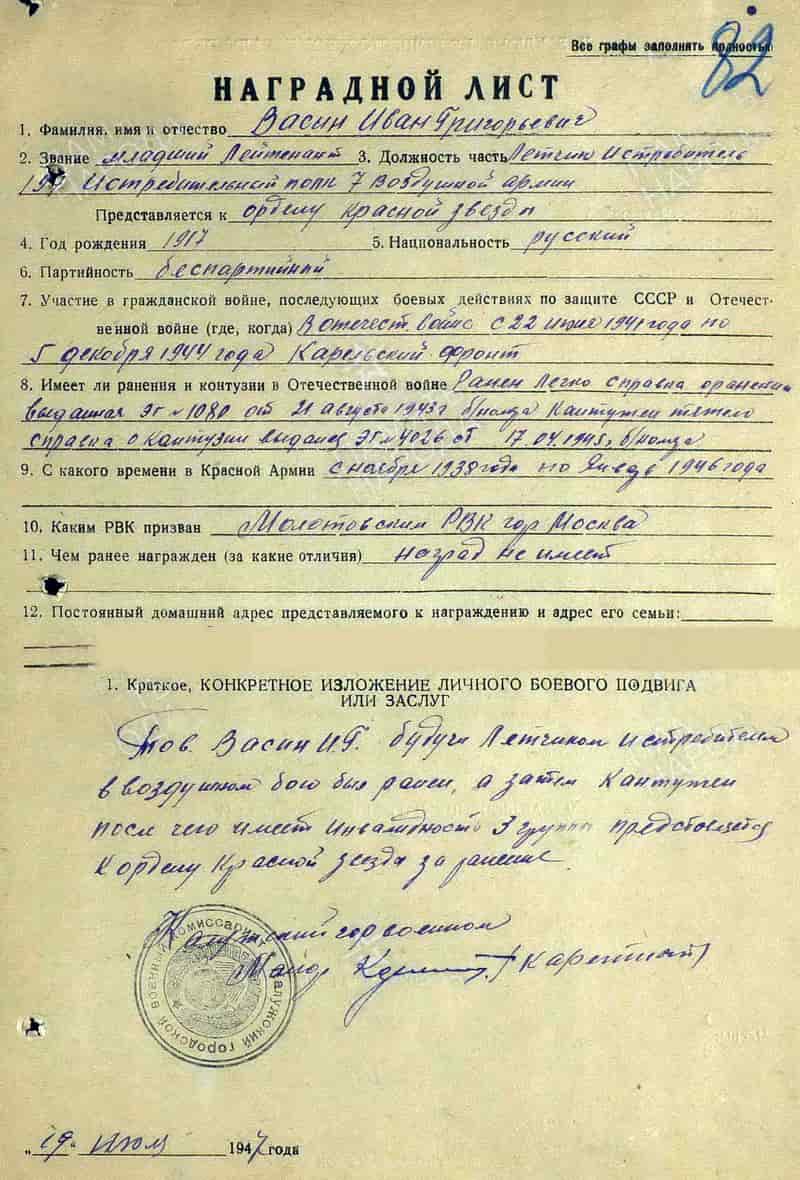 Все графы заполнять полностью
82
НАГРАДНОЙ ЛИСТ
1. Фамилия, имя и отчество Васин Иван Григорьевич
2. Звание младший Лейтенант 3. Должность часть Летчик Истребитель
Истребительный полк 7 Воздушной армии
Представляется к ордену Красной звезды
4. Год рождения 1917 5. Национальность русский
6. Партийность беспартийный
7. Участие в гражданской войне, последующих боевых действиях по защите СССР и Отечест-
венной войне (где, когда) В отечест. войне с 22 июня 1941 года по
5 декабря 1944 года Карельский фронт
8. Имеет ли ранения и контузии в Отечественной войне Ранен Легко справка о ранении
выданная ЭГ № 1080 от 21 августа 1943 г Кантужен тяжело
справка о Кантузии выданая ЭГ № 4026 от 17.04.1945 г
9. С какого времени в Красной Армии с ноября 1938 года по 1946 года
10. Каким РВК призван Молотовским РВК гор Москва
11. Чем ранее награжден (за какие отличия) наград не имеет
12. Постоянный домашний адрес представляемого к награждению и адрес его семьи:
1. Краткое, КОНКРЕТНОЕ ИЗЛОЖЕНИЕ ЛИЧНОГО БОЕВОГО ПОДВИГА
ИЛИ ЗАСЛУГ
Тов. Васин И.Г. будучи Летчиком истребителем
в воздушном бою был ранен, а затем Кантужен
после чего имеет Инвалидность 3 группы представляется
К ордену Красной звезда за ранение
Калужский горвоенком
Майор
военный комиссариат
Калужский городской
„19“ Июля 1947 года